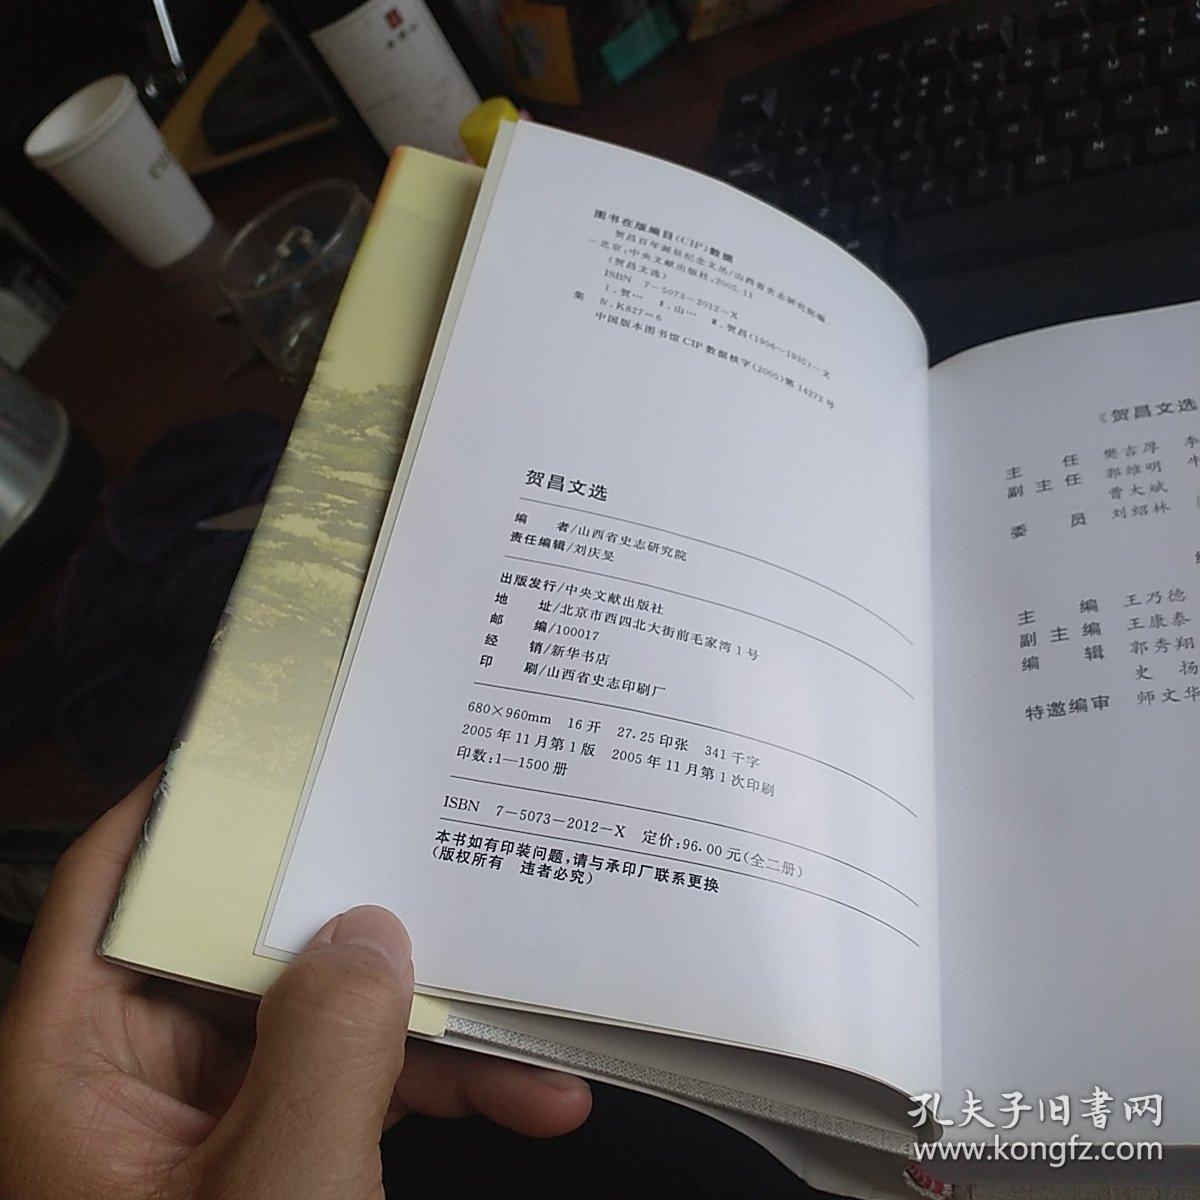 图书在版编目(CIP)数据
贺昌百年诞辰纪念文丛/山西省史志研究院编.
-北京:中央文献出版社,2005.11
(贺昌文选)
ISBN 7-5073-2012-X
Ⅰ.贺… Ⅱ.山… Ⅲ.贺昌(1906~1935)-文
集 Ⅳ.K827=6
中国版本图书馆CIP数据核字(2005)第14272号
贺昌文选
编 者/山西省史志研究院
责任编辑/刘庆旻
出版发行/中央文献出版社
地 址/北京市西四北大街前毛家湾1号
邮 编/100017
经 销/新华书店
印 刷/山西省史志印刷厂
680×960mm 16开 27.25印张 341千字
2005年11月第1版 2005年11月第1次印刷
印数:1—1500册
ISBN 7-5073-2012-X 定价:96.00元(全二册)
本书如有印装问题,请与承印厂联系更换
(版权所有 违者必究)
《贺昌文选
主 任 樊吉厚
副主任 郭维明
曹大斌
委 员 刘绍林
主 编 王乃德
副主编 王康泰
编 辑 郭秀翔
史 扬
特邀编审 师文华
孔夫子旧書网
www.kongfz.com